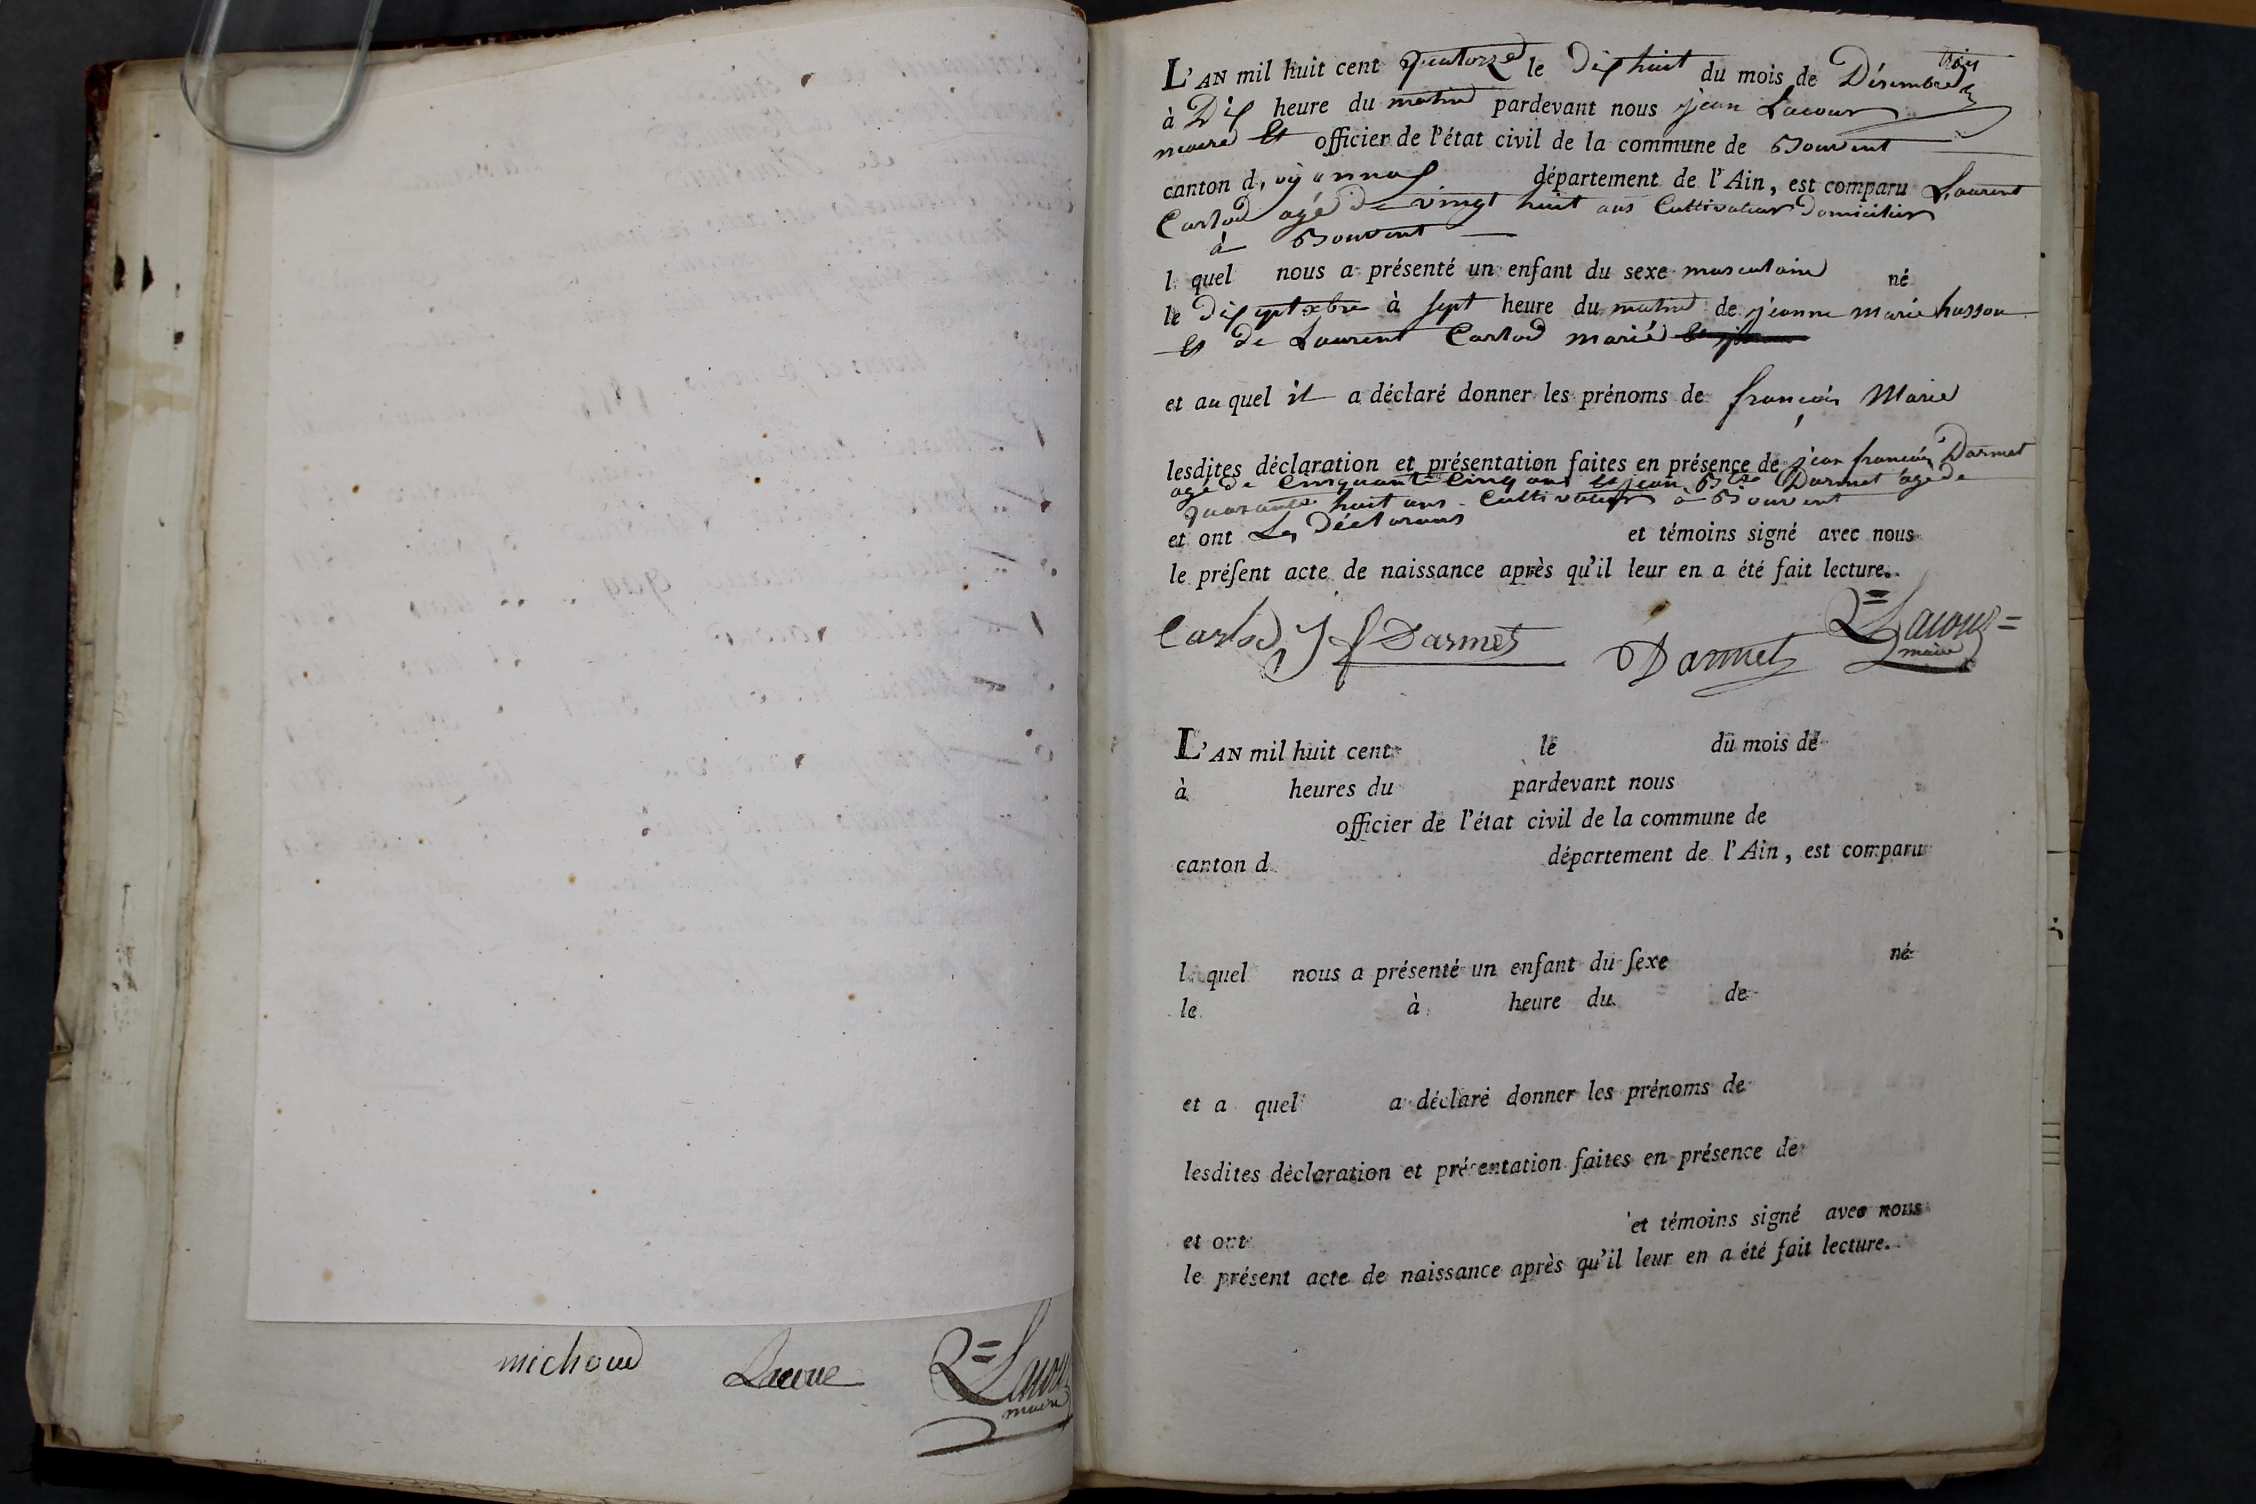 michaud Lacour Lacour
maire
L'AN mil huit cent quatorze le dix huit du mois de Décembre
à Dix heure du matin pardevant nous jean Lacour
maire et officier de l'état civil de la commune de Bouvent
canton d, oyonnax département de l'Ain, est comparu Laurent
Carlod agé de vingt huit ans Cultivateur domicilier
à Bouvent
l quel nous a présenté un enfant du sexe masculain né
le dix sept xbre à sept heure du matin de jeanne marie husson
et de Laurent Carlod marié
et au quel il a déclaré donner les prénoms de françois Marie
lesdites déclaration et présentation faites en présence de jean françois Darmet
agé de cinquante cinq ans et jean Bte Darmet agé de
quarante huit ans Cultivateurs à Bouvent
et ont Les déclarans et témoins signé avec nous
le préſent acte de naissance après qu'il leur en a été fait lecture.
Carlod J f Darmet Darmet Lacour
maire
L'AN mil huit cent le du mois de
à heures du pardevant nous
officier de l'état civil de la commune de
canton d département de l'Ain, est comparu
l quel nous a présenté un enfant du ſexe né
le à heure du de
et a quel a déclaré donner les prénoms de
lesdites déclaration et présentation faites en présence de
et ont et témoins signé avec nous
le présent acte de naissance après qu'il leur en a été fait lecture.